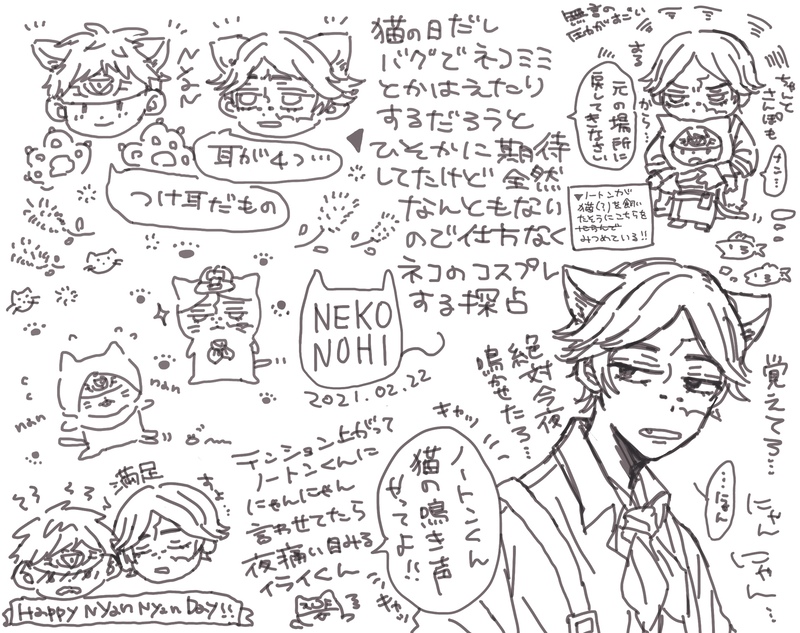 猫の日だし
バグでネコミミ
とかはえたり
するだろうと
ひそかに期待
してたけど全然
なんともない
ので仕方なく
ネコのコスプレ
する探占
耳が4つ…
つけ耳だもの
無言の
圧がすごい
する
から…
ちゃんと
さんぽも
元の場所に
戻してきなさい
ナン…
▼ノートンが
猫(?)を飼い
たそうにこちらを
みつめている!!
NEKO
NOHI
2021.02.22
nan
nan
絶対今夜
鳴かせたろ…
覚えてろ…
…にゃん
にゃん
にゃん…
キャッ
ノートンくん
猫の鳴き声
やってよ!!
キャッ
テンション上がって
ノートンくんに
にゃんにゃん
言わせてたら
夜痛い目みる
イライくん
満足
Happy Nyan Nyan Day!!